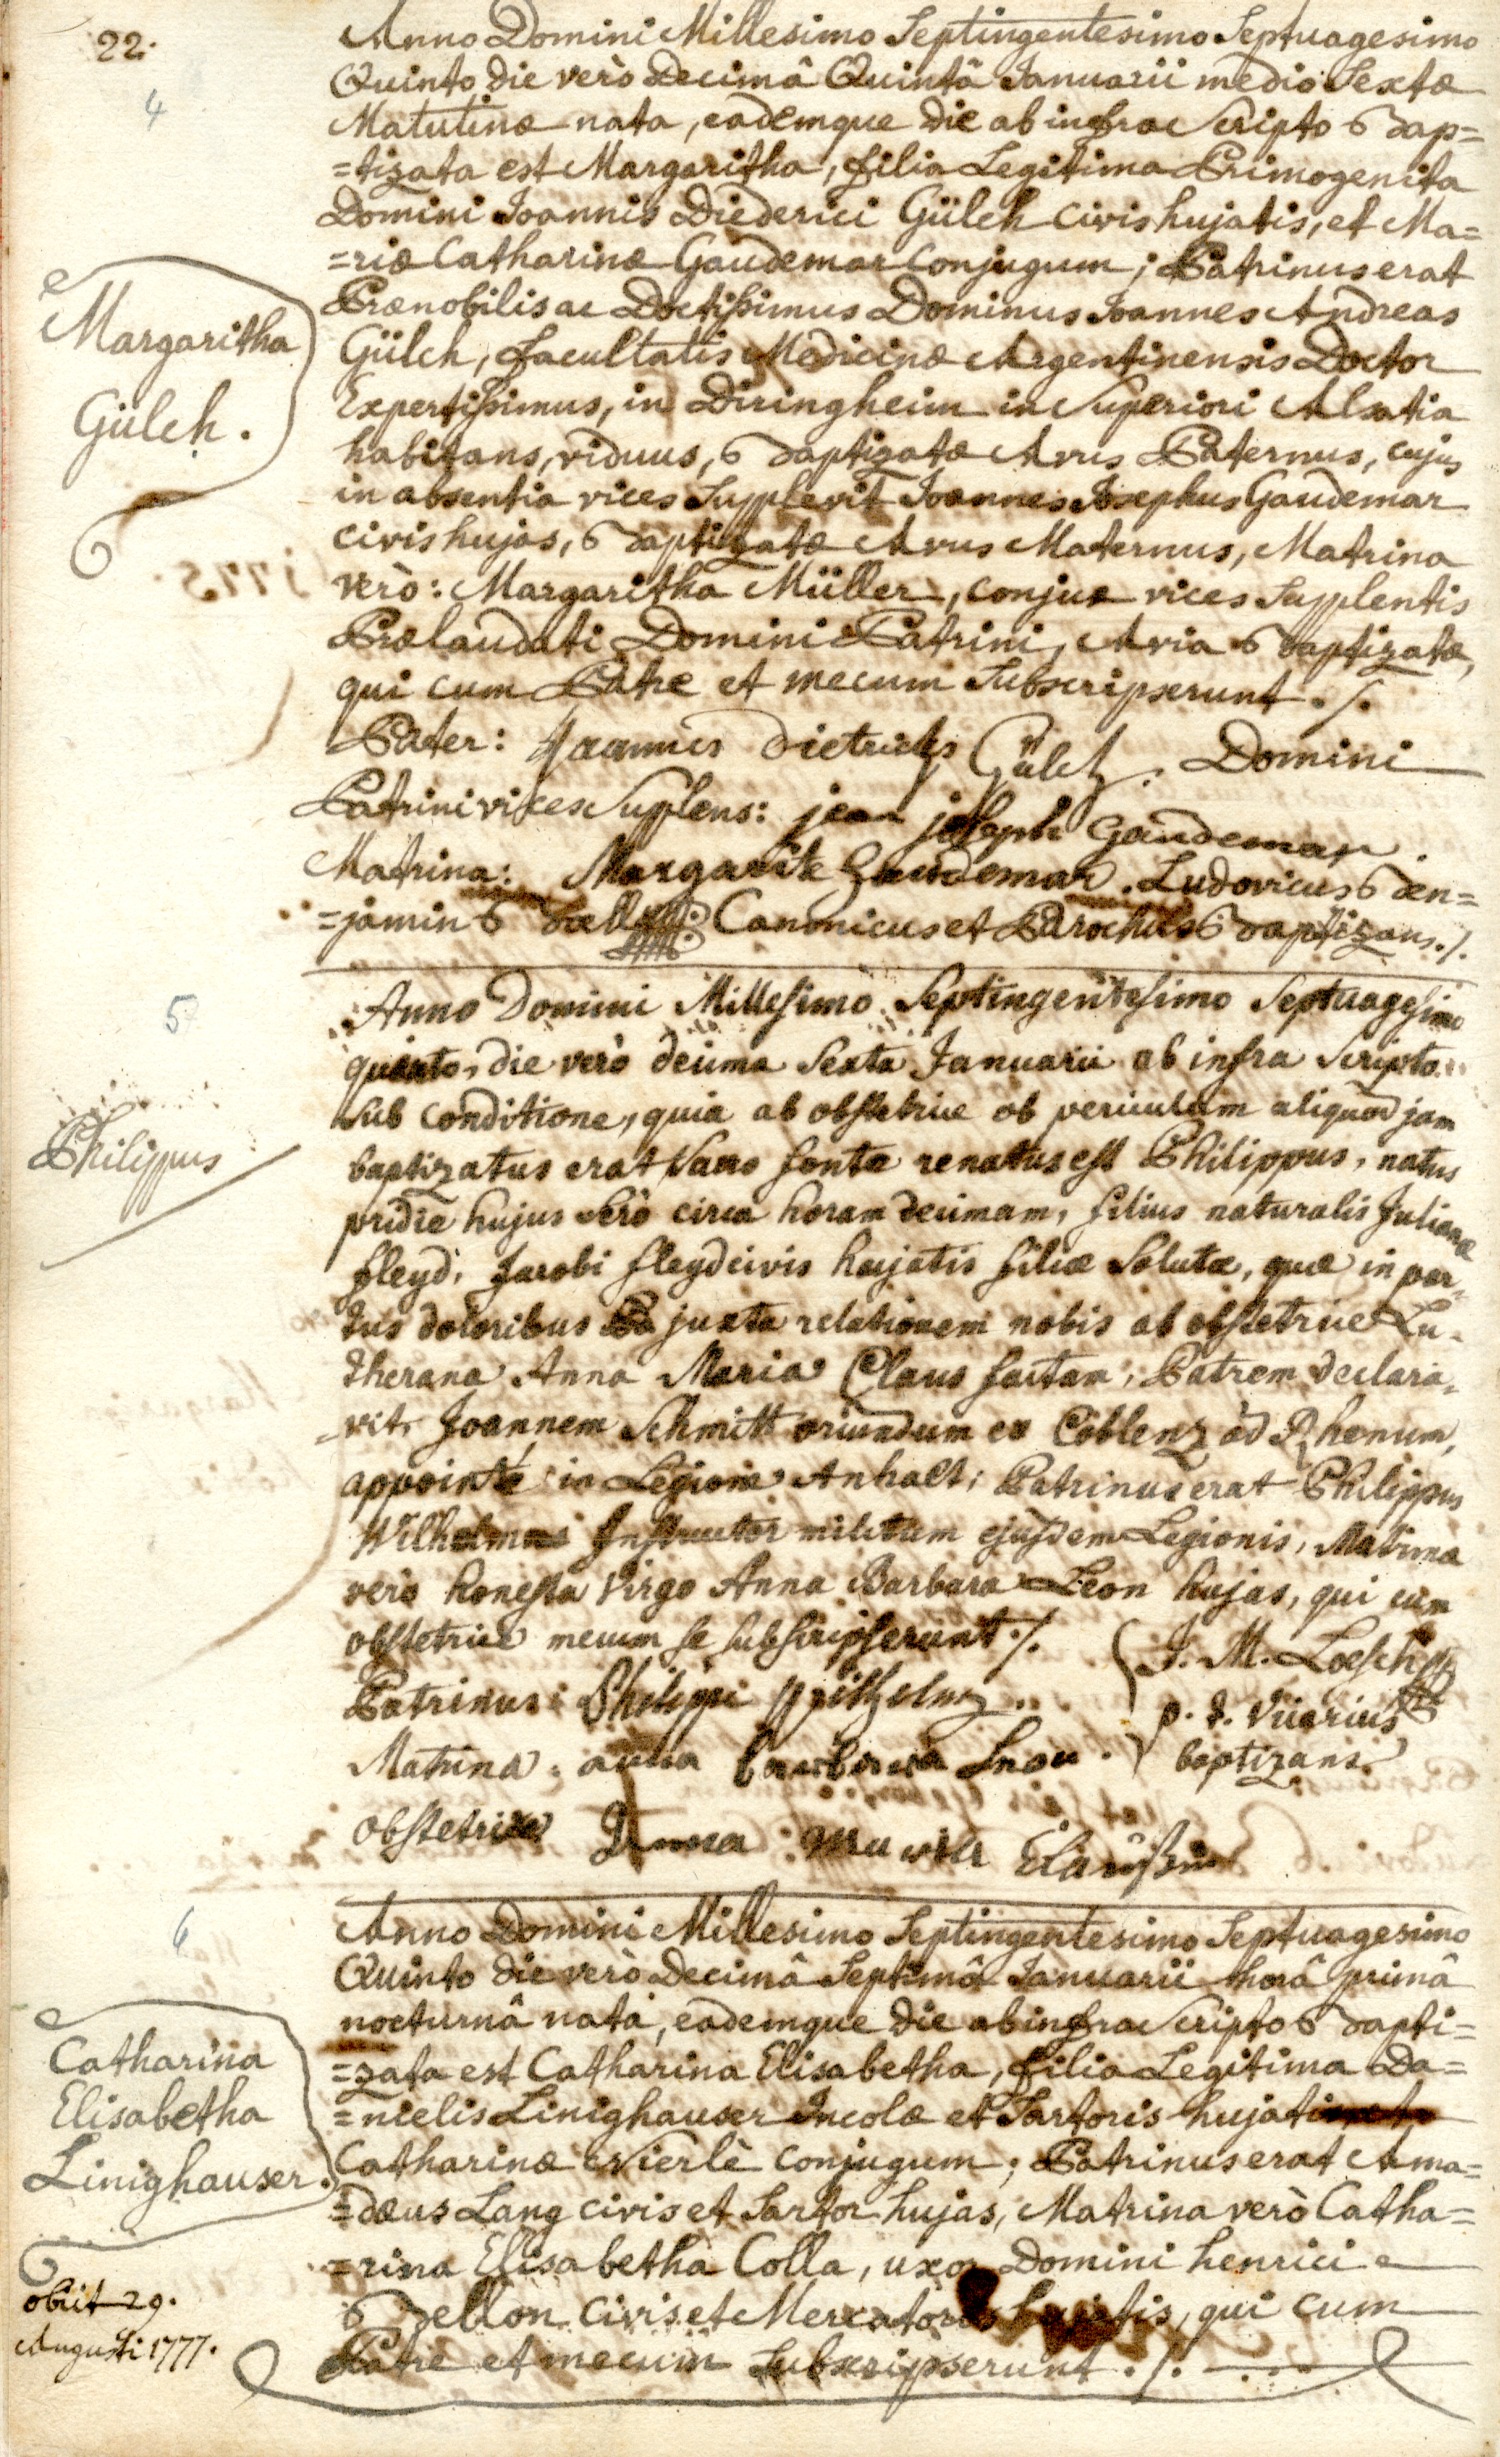 22.
4
Anno Domini Millesimo Septingentesimo Septuagesimo
Quinto die verò Decimâ Quintâ Januarii medio Sextæ
Matutinæ nata, eademque die ab infra Scripto Bap=
=tizata est Margaritha, filia Legitima Primogenita
Domini Joannis Diederici Gülch civis hujatis, et Ma=
=riæ Catharinæ Gaudemar Conjugum; Patrinus erat
Prænobilis ac Doctissimus Dominus Joannes Andreas
Gülch, facultatis Medicinæ Argentinensis Doctor
Expertissimus, in Diringheim in Superiori Alsatia
habitans, viduus, Baptizatæ Avus Paternus, cujus
in absentia vices Supplevit Joannes Josephus Gaudemar
civis hujas, Baptizatæ Avus Maternus, Matrina
verò: Margaritha Müller, conjux vices Supplentis
Prælaudati Domini Patrini, Avia Baptizatæ,
qui cum Patre et mecum Subscripserunt ./.
Margaritha
Gülch.
Pater: Joannes Dietrichs Gülch. Domini
Patrini vices Supplens: jean joseph Gaudemar.
Matrina: Margarite Gaudemar. Ludovicus Ben=
=jamin Bæll Canonicus et Parochus Baptizans ./.
5
Anno Domini Millesimo Septingentesimo Septuagesimo
quinto, die verò decima Sexta Januarii ab infra Scripto
Sub conditione, quia ab obstetrice ob periculum aliquod jam
baptizatus erat Sacro fonte renatus est Philippus, natus
pridie hujus verò circa horam decimam, filius naturalis Julianæ
fleyd, Jacobi fleyd civis hujatis filiæ Solutæ, quæ in par-
tus doloribus juxta relationem nobis ab obstetrice Lu-
therana Anna Maria Claus factam, Patrem declara-
-vit Joannem Schmitt oriundum ex Coblenz ad Rhenum,
appointé in Legione Anhalt; Patrinus erat Philippus
Wilhelmus Instructor militum ejusdem Legionis, Matrina
verò honesta Virgo Anna Barbara Leon hujas, qui cum
obstetrice mecum se subscripserunt ./.
Philippus
Patrinus: Philippi Wilhelm
J. M. Loesch
p. t. Vicarius
baptizans
Matrina: anna barbara Leon.
obstetrix Anna Maria Claußin
6
Anno Domini Millesimo Septingentesimo Septuagesimo
Quinto die verò Decimâ Septimâ Januarii horâ primâ
nocturnâ nata, eademque die ab infra Scripto Bapti=
=zata est Catharina Elisabetha, filia Legitima Da=
=nielis Linighauser Incolæ et Sartoris hujatis et
Catharinæ Vierlè Conjugum; Patrinus erat Ama=
=dæus Lang civis et Sartor hujas, Matrina verò Catha=
=rina Elisabetha Colla, uxor Domini henrici
Bellon Civis et Mercatoris hujatis, qui cum
Patre et mecum Subscripserunt ./.
Catharina
Elisabetha
Linighauser.
obiit 29.
Augusti 1777.